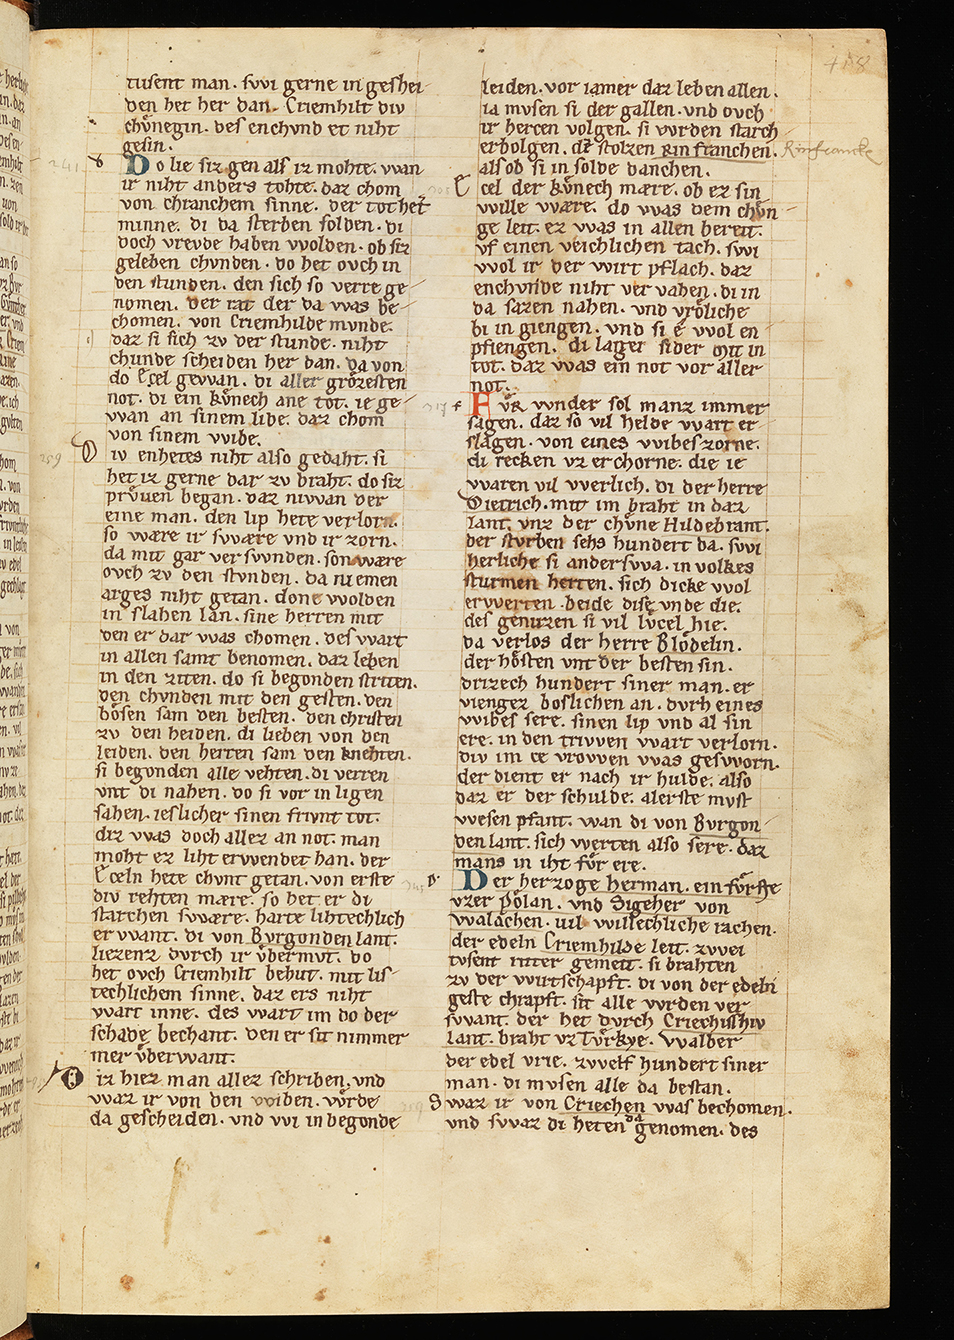 tusent man. svvi gerne in geshei
den het her dan. Criemhilt div
chůnegin. des enchvnd et niht
gesin.
Do lie siz gen als iz mohte. vvan
ir niht anders tohte. daz chom
von chranchem sinne. der tot het
minne. di da sterben solden. di
doch vrevde haben vvolden. ob siz
geleben chvnden. do het ovch in
den stunden. den sich so verre ge
nomen. der rat der da vvas be
chomen. von Criemhilde mvnde.
daz si sich zv der stunde. niht
chunde scheiden her dan. da von
do Ecel gevvan. di aller grŏzesten
not. di ein kůnech ane tot. ie ge
vvan an sinem libe. daz chom
von sinem vvibe.
Div enhetes niht also gedaht. si
het iz gerne dar zv braht. do siz
průuen began. daz nivvan der
eine man. den lip hete verlorn.
so vvære ir svvære vnd ir zorn.
da mit gar versvvnden. son vvære
ovch zv den stvnden. da niemen
arges niht getan. done vvolden
in slahen lan. sine herren mit
den er dar vvas chomen. des vvart
in allen samt benomen. daz leben
in den ziten. do si begonden striten.
den chvnden mit den gesten. den
bősen sam den besten. den christen
zv den heiden. di lieben von den
leiden. den herren sam den knehten.
si begonden alle vehten. di verren
vnt di nahen. do si vor in ligen
sahen. ieslicher sinen frivnt tot.
diz vvas doch allez an not. man
moht ez liht ervvendet han. der
Eceln hete chvnt getan. von erste
div rehten mære. so het er di
starchen svvære. harte lihtechlich
ervvant. di von Bvrgonden lant.
liezenz dvrch ir ůbermvt. do
het ovch Criemhilt behut. mit lis
techlichem sinne. daz ers niht
vvart inne. des vvart im do der
schade bechant. den er sit nimmer
mer ůbervvant.
Diz hiez man allez schriben, vnd
vvaz ir von den vviben. vvůrde
da gescheiden. vnd vvi in begonde
leiden. vor iamer daz leben allen.
ia mvsen si der gallen. vnd ovch
ir hercen volgen. si vvrden starch
erbolgen. dz stolzen Rin franchen. Rinfrancke
als ob si in solde danchen.
Ecel der kůnech mære. ob ez sin
vville vvære. do vvas dem chůn
ge leit. ez vvas in allen bereit.
vf einen veichlichen tach. svvi
vvol ir der vvirt pflach. daz
enchvnde niht vervahen. di in
da sazen nahen. vnd vrŏliche
bi in giengen. vnd si e vvol en
pfiengen. di lagen sider mit in
tot. daz vvas ein not vor aller
not.
Fůr vvnder sol manz immer
sagen. daz so vil helde vvart er
slagen. von eines vvibes zorne.
di recken vz erchorne. die ie
vvaren vil vverlich. di der herre
Dietrich. mit im braht in daz
lant. vnz der chůne Hildebrant.
der stvrben sehs hundert da. svvi
herliche si andersvva. in volkes
sturmen herten. sich dicke vvol
ervverten. beide dise vnde die.
des genuzen si vil lvcel hie.
da verlos der herre Blődelin.
der hősten vnt der besten sin.
drizech hundert siner man. er
vienger boslichen an. dvrh eines
vvibes sere. sinen lip vnd al sin
ere. in den trivven vvart verlorn.
div im ce vrovven vvas gesvvorn.
der dient er nach ir hulde. also
daz er der schulde. alerste mvst
vvesen pfant. wan di von Bvrgon
den lant. sich vverten also sere. daz
mans in iht fůr ere.
Der herzoge Herman. ein fůrste
vzer Pőlan. vnd Sigeher von
vvalachen. vil vvillechliche rachen.
der edeln Criemhilde leit. zvvei
tvsent ritter gemeit. si brahten
zv der vvirtschapft. di von der edeln
geste chrapft. sit alle vvrden ver
svvant. der het dvrch Criechisshiv
lant. braht vz Tůrkye. VValber
der edel vrie. zvvelf hundert siner
man. di mvsen alle da bestan.
Svvaz ir von Criechen vvas bechomen.
vnd svvaz di heten da genomen. des